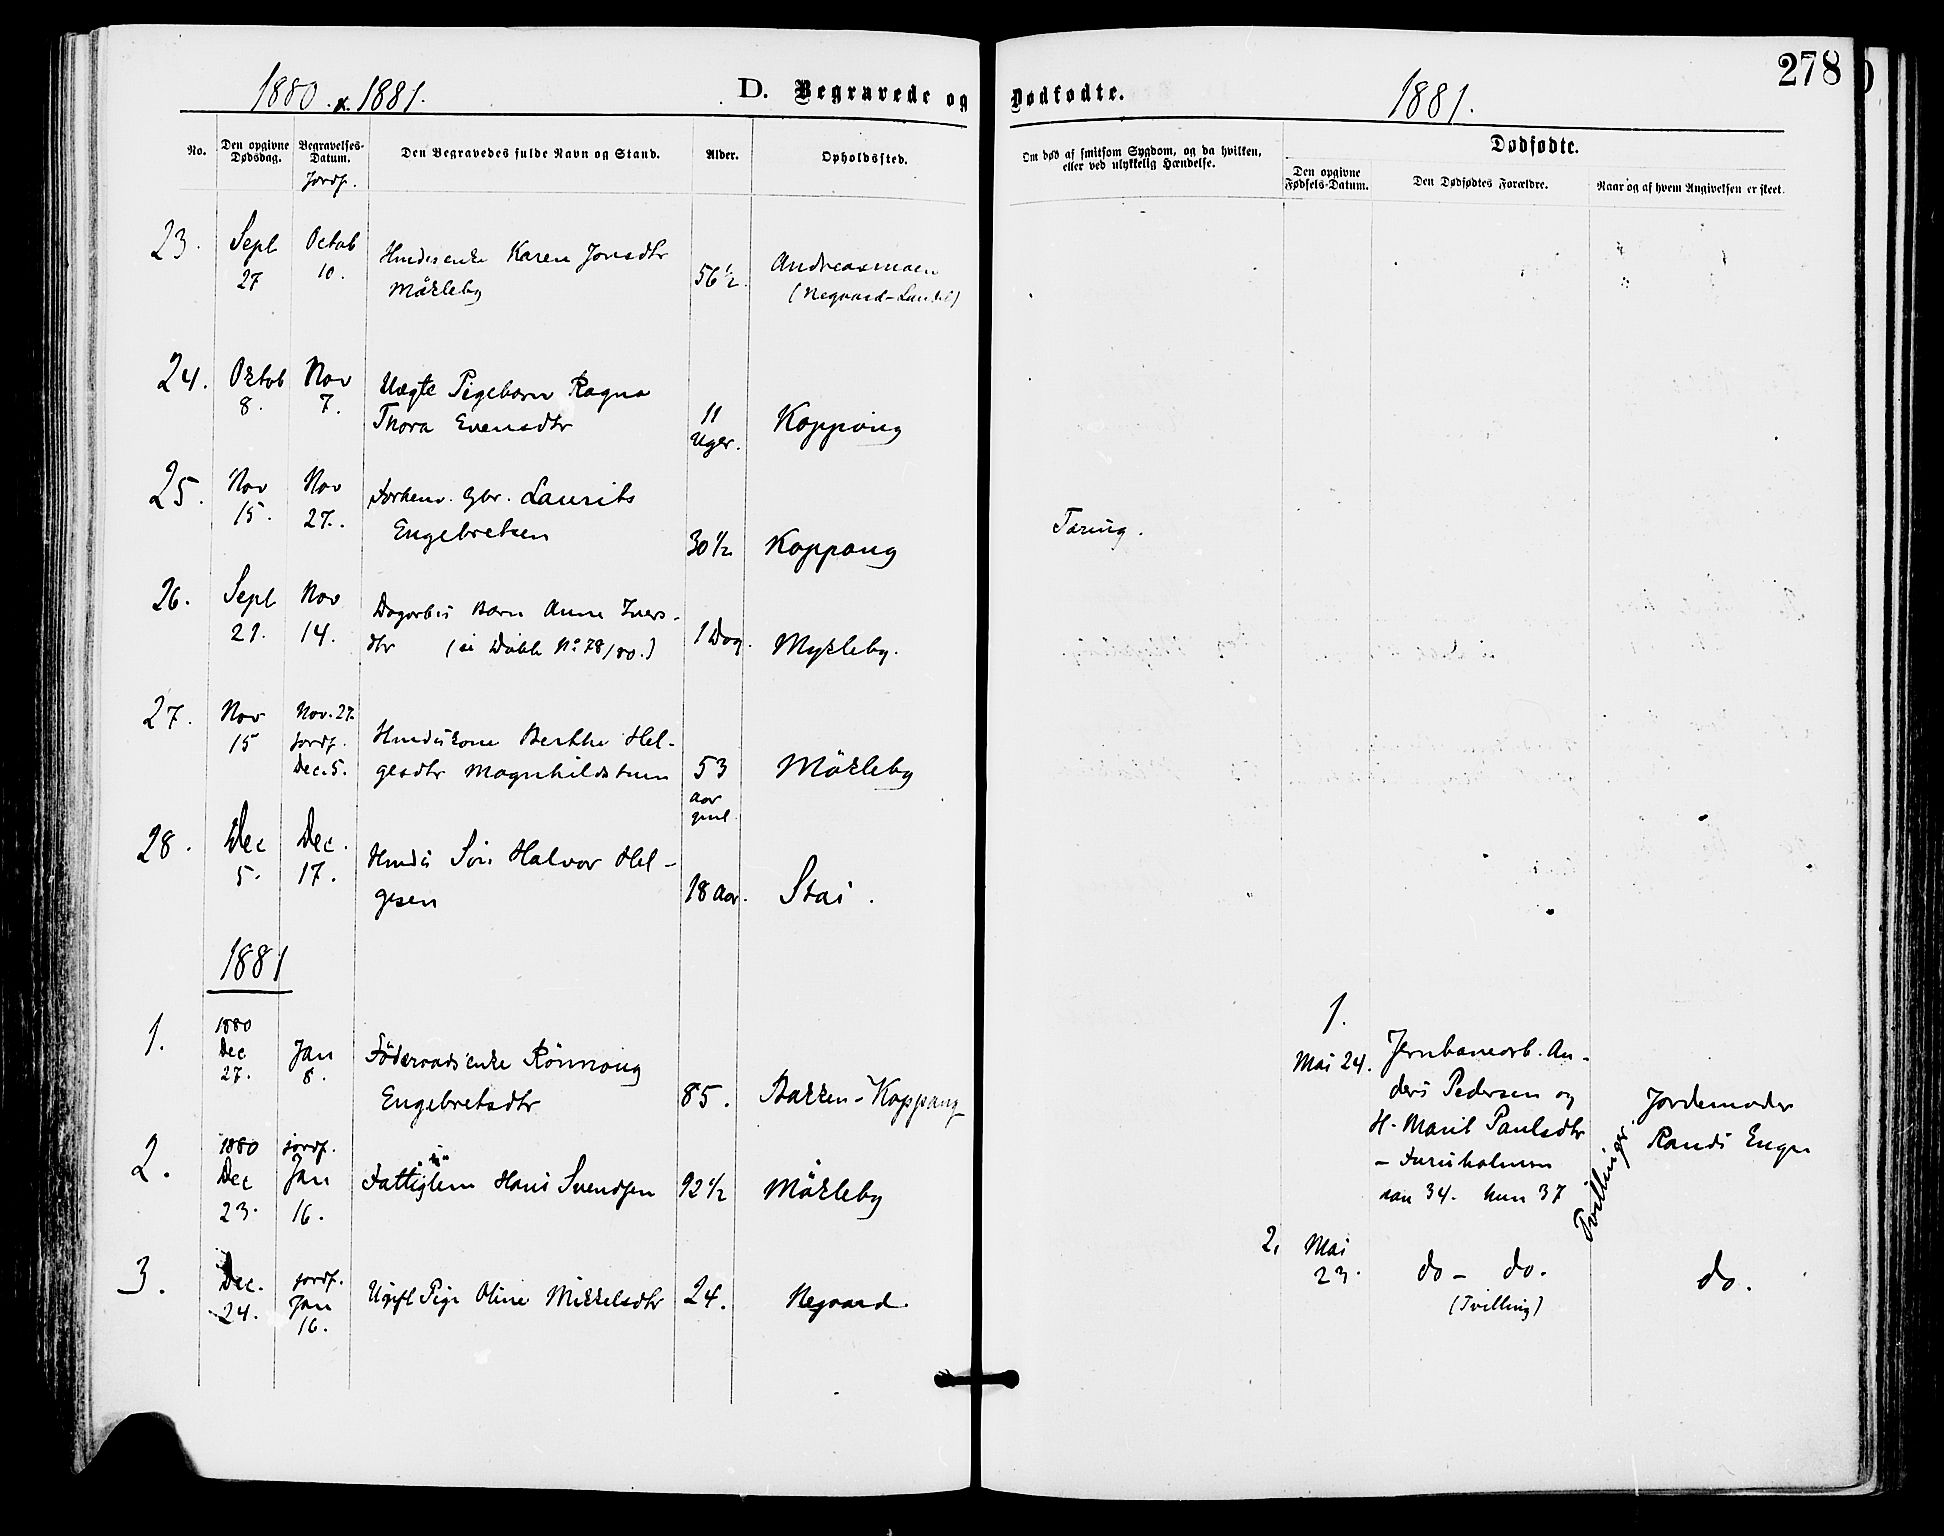 278
1880. & 1881.
D. Begravede og Dødfødte.
1881.
No.
Den opgivne Dødsdag.
Begravelses-Datum.
Jordf.
Den Begravedes fulde Navn og Stand.
Alder.
Opholdssted.
Om død af smitsom Sygdom, og da hvilken,
eller ved ulykkelig Hændelse.
Dødfødte.
Den opgivne Fødsels-Datum.
Den Dødfødtes Forældre.
Naar og af hvem Angivelsen er skeet.
23. Sept 27 Octob 10. Karen Jonsdtr
Mökleby 56½ Andreasmoen
(Negaard-
24. Oktob 8. Nov 7. Uægte Pigebarn Ragna
Thora Evensdtr 11 Uger. Koppang
25. Nov 15. Nov 27. Forhenv. Gbr. Laurits
Engebretsen 30½ Koppang Tæring.
26. Sept 21. Nov 14. Dagarb's Barn Anne Ivers-
dtr (se Daabb No 78/80.) 1 Dag. Mykleby.
27. Nov 15 Nov. 27. jordf. Dec. 5. Husm's kone Berthe Hel-
gesdtr Magnhildstuen 53 aar gml. Mökleby
28. Dec 5. Dec. 17. Husm's Søn Halvor Hel-
gesen 18 Aar. Stai.
1881
1. 1880 Dec 27. Jan 8. Föderaadsenke Rönnoug
Engebretsdtr 85. Bakken-Koppang
2. 1880 Dec 23. jordf. Jan 16. Fattiglem Hans Svendsen 92½ Mökleby
3. Dec. 24. jordf. Jan 16. Ugift Pige Oline Mikkelsdtr 24. Negaard.
1.
Mai 24. Jernbanearb. An-
ders Pedersen og
H. Marit Paulsdtr
- Furuholmen
34. hun 37
Tvillinger.
Jordemoder
Randi Enger
2. Mai 23. do - do.
(Tvilling)
do.